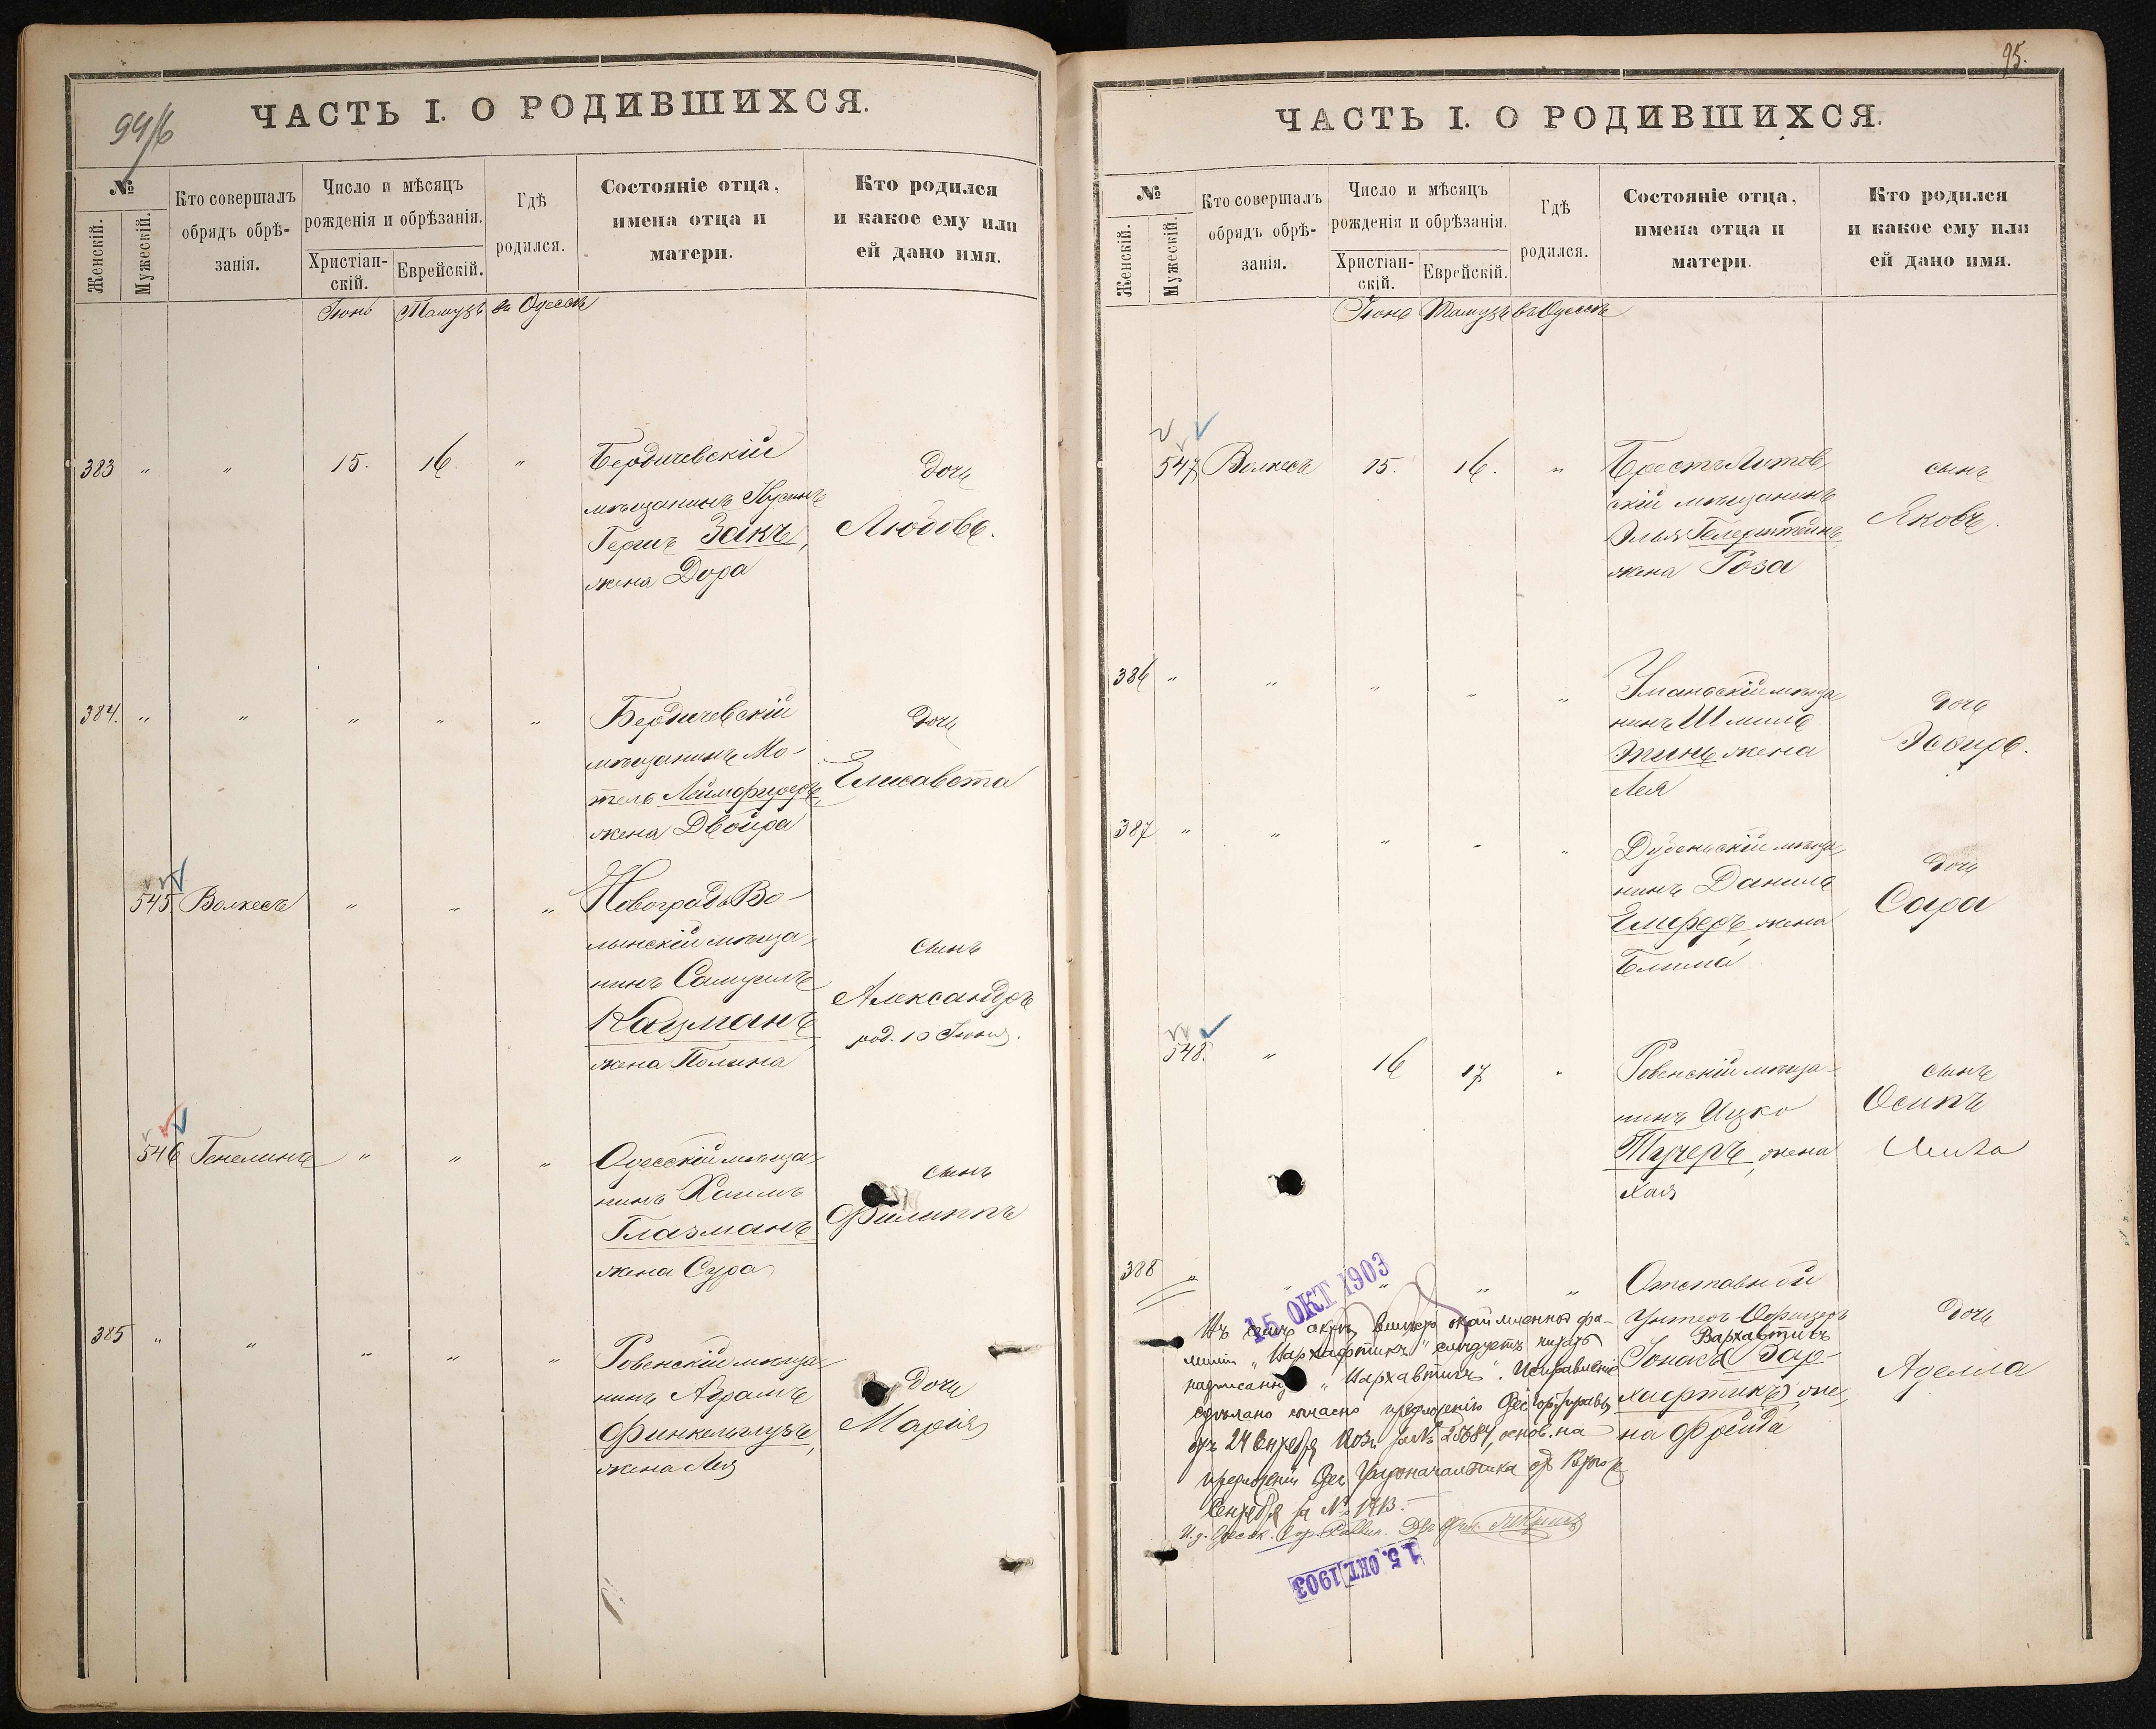 99/б
ЧАСТЬ I. О РОДИВШИХСЯ.
№
Женскій.
Мужескій.
Кто совершалъ
обрядъ обрѣ-
занія.
Число и мѣсяцъ
рожденія и обрѣзанія.
Христіан-
скій.
Еврейскій.
Гдѣ
родился.
Состояніе отца,
имена отца и
матери.
Кто родился
и какое ему или
ей дано имя.
Іюнь Тамузъ въ Одессѣ
383 " " 15. 16. " Бердичевскій
мѣщанинъ Нусинъ
Гершъ Закъ,
жена Дора
дочь
Любовь.
384. " " " " " Бердичевскій
мѣщанинъ Мо-
тель
жена Двойра
дочь
Елисавета
545. Волкесъ " " " Новоградъ Во-
лынскій мѣща-
нинъ Самуилъ
Кацманъ
жена Полина
сынъ
Александръ
род. 10 Іюня.
546 Генелинъ " " " Одесскій мѣща-
нинъ Хаимъ
Глазманъ
жена Сура
сынъ
Филиппъ
385 " " " " " Ровенскій мѣща-
нинъ Абрамъ
Финкельглузъ,
жена Лея
дочь
Марія
95.
ЧАСТЬ I. О РОДИВШИХСЯ.
№
Женскій.
Мужескій.
Кто совершалъ
обрядъ обрѣ-
занія.
Число и мѣсяцъ
рожденія и обрѣзанія.
Христіан-
скій.
Еврейскій.
Гдѣ
родился.
Состояніе отца,
имена отца и
матери.
Кто родился
и какое ему или
ей дано имя.
Іюнь Тамузъ въ Одессѣ
547 Волкесъ 15. 16. " Брестъ Литов-
скій мѣщанинъ
Элья Гелерштейнъ,
жена Роза
сынъ
Яковъ.
386 " " " " " Уманьскій мѣща-
нинъ Шмиль
Этинъ жена
Лея
дочь
Эсѳирь.
387 " " " " " Дубенскій мѣща-
нинъ Данилъ
жена
Блима
дочь
Сара
548. " 16 17 " Ровенскій мѣща-
нинъ Ицко
Тучеръ, жена
Хая
сынъ
Осипъ
388 " " " " " Отставной
Унтеръ Офицеръ
Вархавтигъ
Іонасъ (Вар-
хафтикъ) же-
на Фрейда
дочь
Аделла
15. ОКТ 1903
фа-
миліи „Вархафтикъ" слѣдуетъ читать
„Вархавтигъ". Исправленіе
сдѣлано согласно
отъ 24 Сентября № 25684, основ. на
Градоначальника отъ
Сентября за № 1713.
И. д. Одесск. Гор. Раввин.
15. ОКТ. 1903